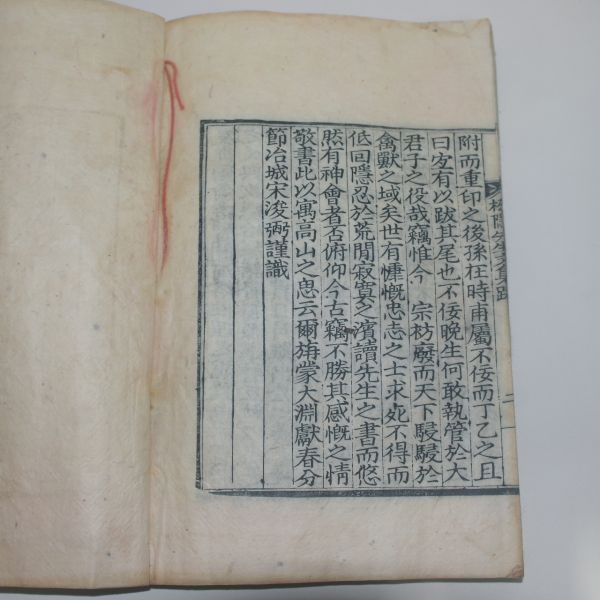 附而重印之後孫枉時甫屬不佞而丁乙之且
曰宜有以跋其尾也不佞晚生何敢執管於大
君子之役哉竊惟今 宗祊廢而天下駸駸於
禽獸之域矣世有慷慨忠志之士求死不得而
低回隱忍於荒閒寂寞之濱讀先生之書而悠
然有神會者否俯仰今古竊不勝其感慨之情
敬書此以寓高山之思云爾旃蒙大淵獻春分
節冶城宋浚弼謹識
先生文集跋